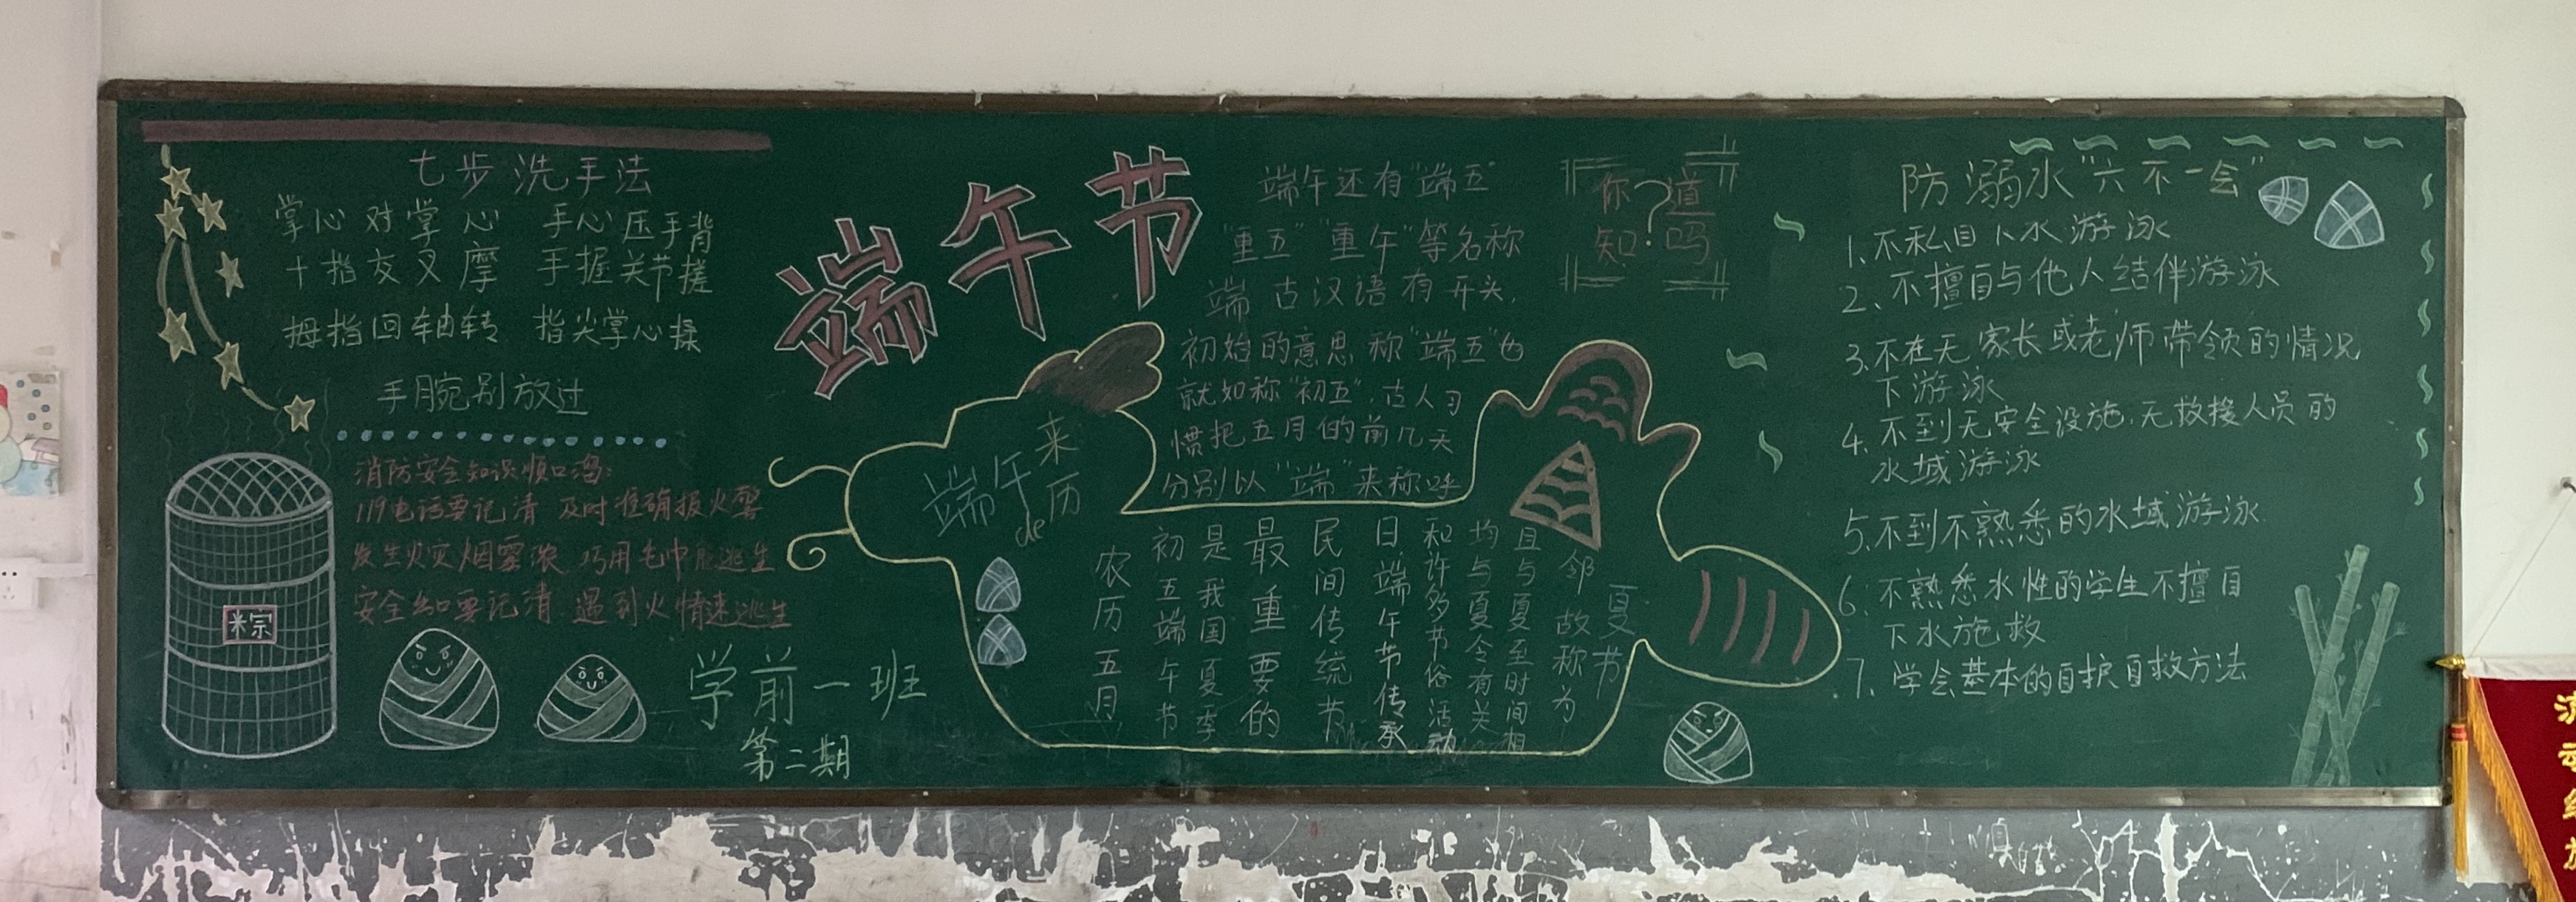 七步洗手法
掌心对掌心 手心压手背
十指交叉摩 手握关节搓
拇指回轴转 指尖掌心揉
手腕别放过
消防安全知识顺口溜：
119电话要记清 及时准确报火警
发生火灾烟雾浓 巧用毛巾能逃生
安全知要记清 遇到火情速逃生
米宗
学前一班
第二期
端午节
端午还有"端五"
"重五""重午"等名称
端 古汉语有开头，
初始的意思 称"端五"也
就如称"初五"，古人习
惯把五月的前几天
分别以"端"来称呼
你知道吗？
端午
来历
de
农历五月
初五端午节
是我国夏季
最重要的
民间传统节
日，端午节传承
和许多节俗活动
均与夏令有关
且与夏至时间相
邻故称为
夏节
防溺水"六不一会"
1、不私自下水游泳
2、不擅自与他人结伴游泳
3、不在无家长或老师带领的情况
下游泳
4、不到无安全设施，无救援人员的
水域游泳
5、不到不熟悉的水域游泳
6、不熟悉水性的学生不擅自
下水施救
7、学会基本的自护自救方法